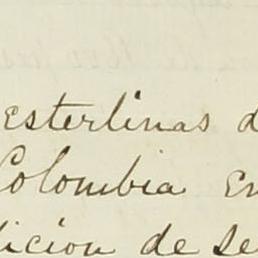 esterlinas d
Colombia en
dicion de se